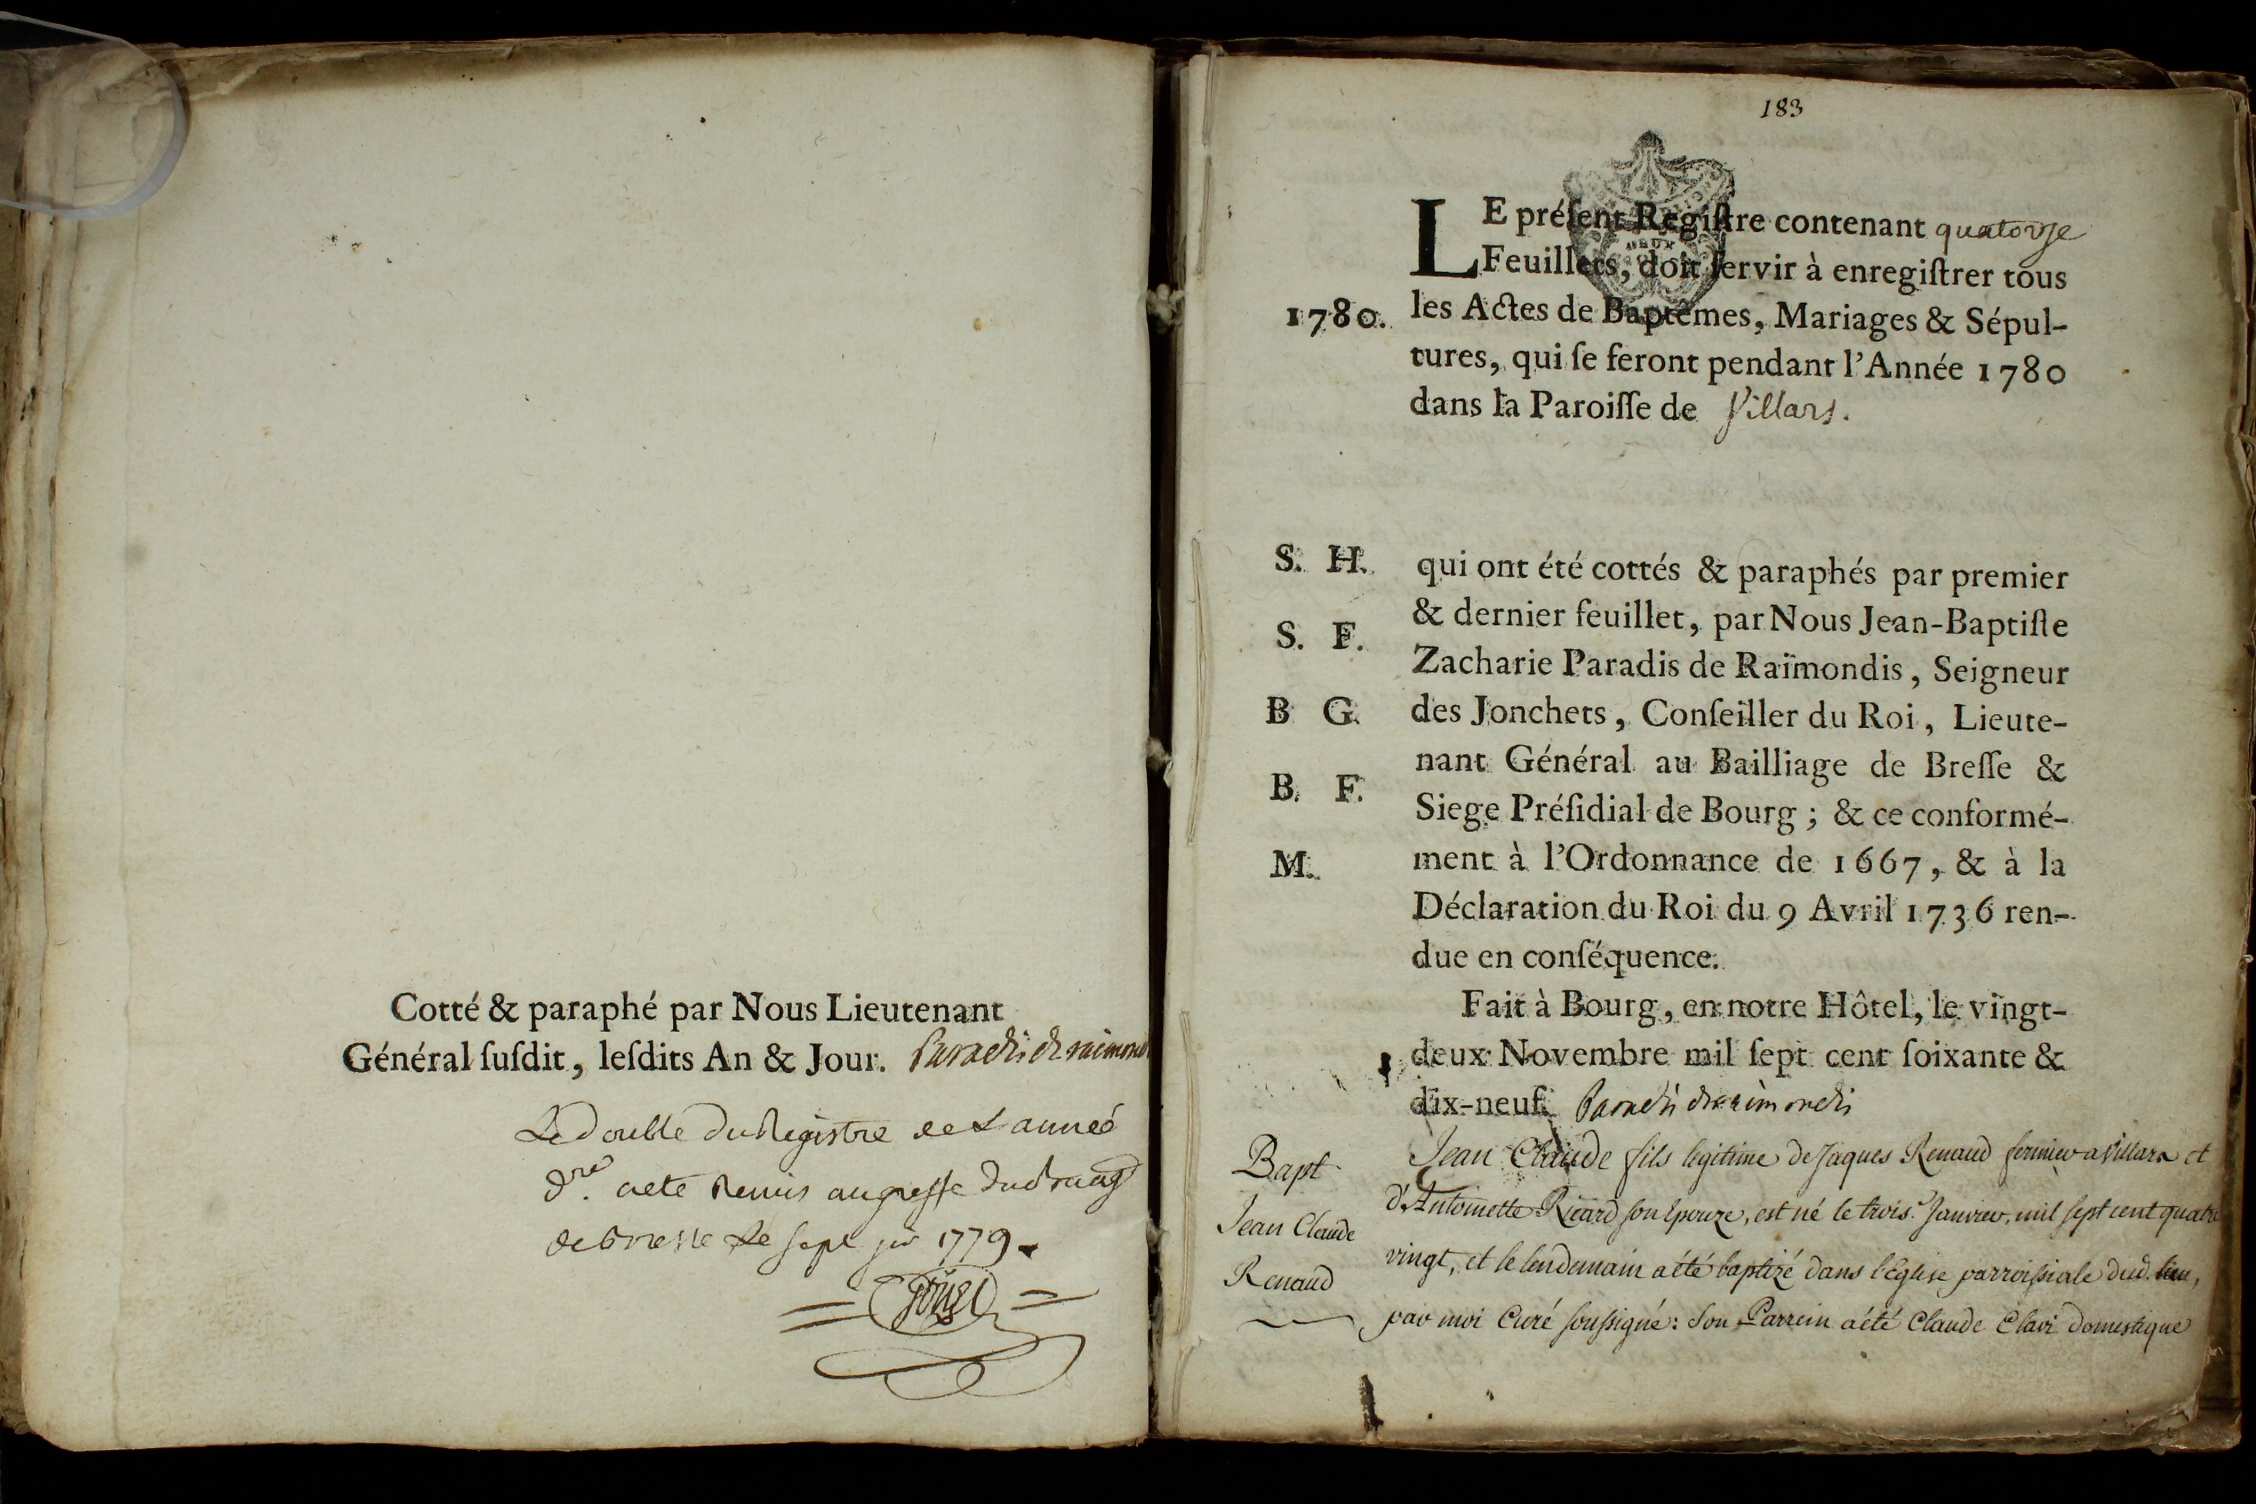 Cotté & paraphé par Nous Lieutenant
Général ſuſdit, leſdits An & Jour. Paradis de raimondi
Le double du Registre de L'année
dre. a ete Remis au greffe du
de bresse le sept 1779.
183
LE préſent Regiſtre contenant quatorze
Feuillets, doit ſervir à enregiſtrer tous
1780. les Actes de Baptêmes, Mariages & Sépul-
tures, qui ſe feront pendant l'Année 1780
dans la Paroiſſe de Villars.
S. H. qui ont été cottés & paraphés par premier
& dernier feuillet, par Nous Jean-Baptiſte
S. F.
Zacharie Paradis de Raïmondis, Seigneur
B G. des Jonchets, Conſeiller du Roi, Lieute-
nant Général au Bailliage de Breſſe &
B. F.
Siege Préſidial de Bourg ; & ce conformé-
M. ment à l'Ordonnance de 1667, & à la
Déclaration du Roi du 9 Avril 1736 ren-
due en conſéquence.
Fait à Bourg, en notre Hôtel, le vingt-
deux Novembre mil ſept cent ſoixante &
dix-neuf. Paradis de raimondis
Bapt
Jean Claude
Renaud
Jean Claude fils legitime de Jaques Renaud fermier a Villars et
d'Antoinette Ricard son épouze, est né le trois Janvier, mil sept cent quatre
vingt, et le lendemain a été baptizé dans l'Eglise parroissiale dud. lieu,
par moi Curé soussigné : Son Parrein a été Claude Clavi domestique